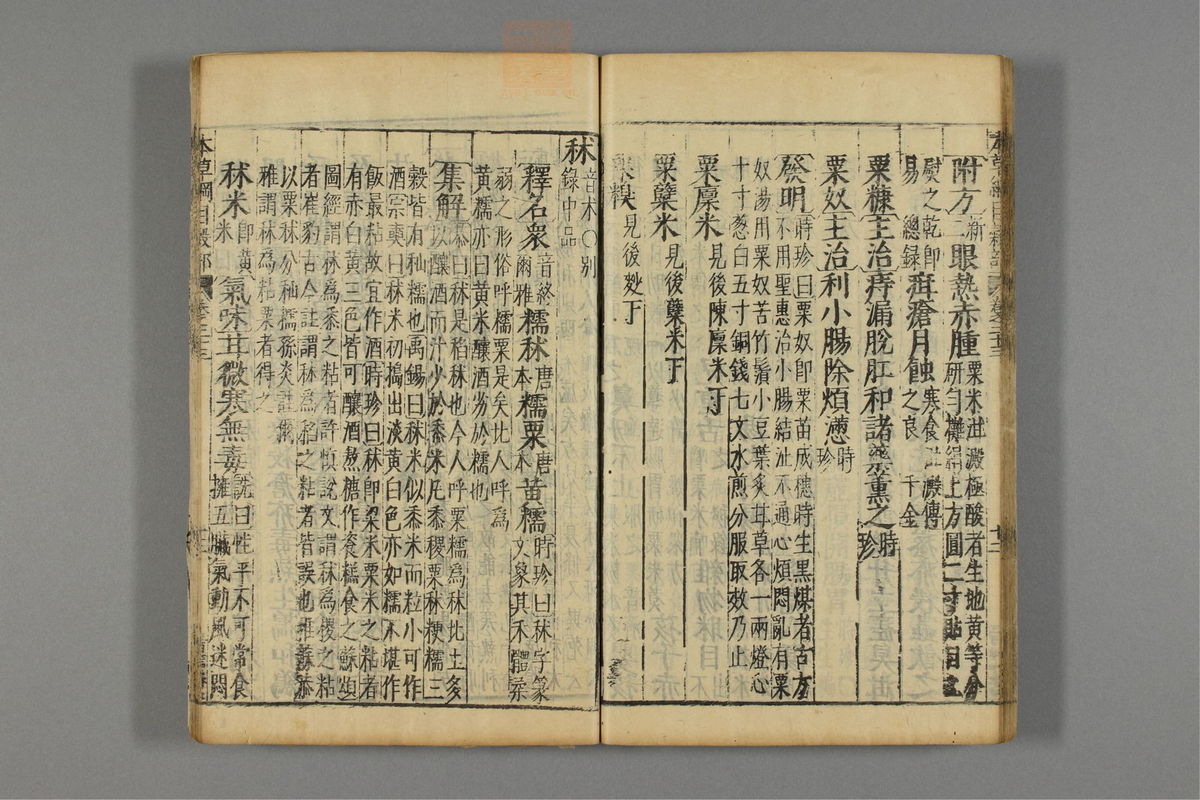 附方新二眼熱赤腫粟米泔澱極酸者生地黃等分
研勻攤絹上方圓二寸貼目上
熨之乾即易 總錄 疳瘡月蝕寒食泔澱傅之良 千金
粟糠主治痔漏脫肛和諸藥薰之時珍
粟奴主治利小腸除煩懣時珍
發明時珍曰粟奴即粟苗成穗時生黑煤者古方
不用聖惠治小腸結澁不通心煩悶亂有粟
奴湯用粟奴苦竹鬚小豆葉炙甘草各一兩燈心
十寸葱白五寸銅錢七文水煎分服取效乃止
粟廩米見後陳廩米下
粟蘗米見後蘗米下
粟糗見後麨下
秫音朮○別錄中品
釋名衆音終爾雅糯秫唐本糯粟唐本黃糯時珍曰秫字篆
文象其禾體柔
弱之形俗呼糯粟是矣北人呼為
黃糯亦曰黃米釀酒劣於糯也
集解恭曰秫是稻秫也今人呼粟糯為秫北土多
以釀酒而汁少於黍米凡黍稷粟秫粳糯三
穀皆有秈糯也禹錫曰秫米似黍米而粒小可作
酒宗奭曰秫米初搗出淡黃白色亦如糯不堪作
飯最粘故宜作酒時珍曰秫即粱米粟米之粘者
有赤白黃三色皆可釀酒熬糖作餈糕食之蘇頌
圖經謂秫為黍之粘者許慎說文謂秫為稷之粘
者崔豹古今註謂秫為稻之粘者皆誤也惟蘇恭
以粟秫分秈糯孫炎註爾
雅謂秫為粘粟者得之
秫米即黃米氣味甘微寒無毒詵曰性平不可常食
擁五臟氣動風迷悶
本草綱目穀部 卷二十三